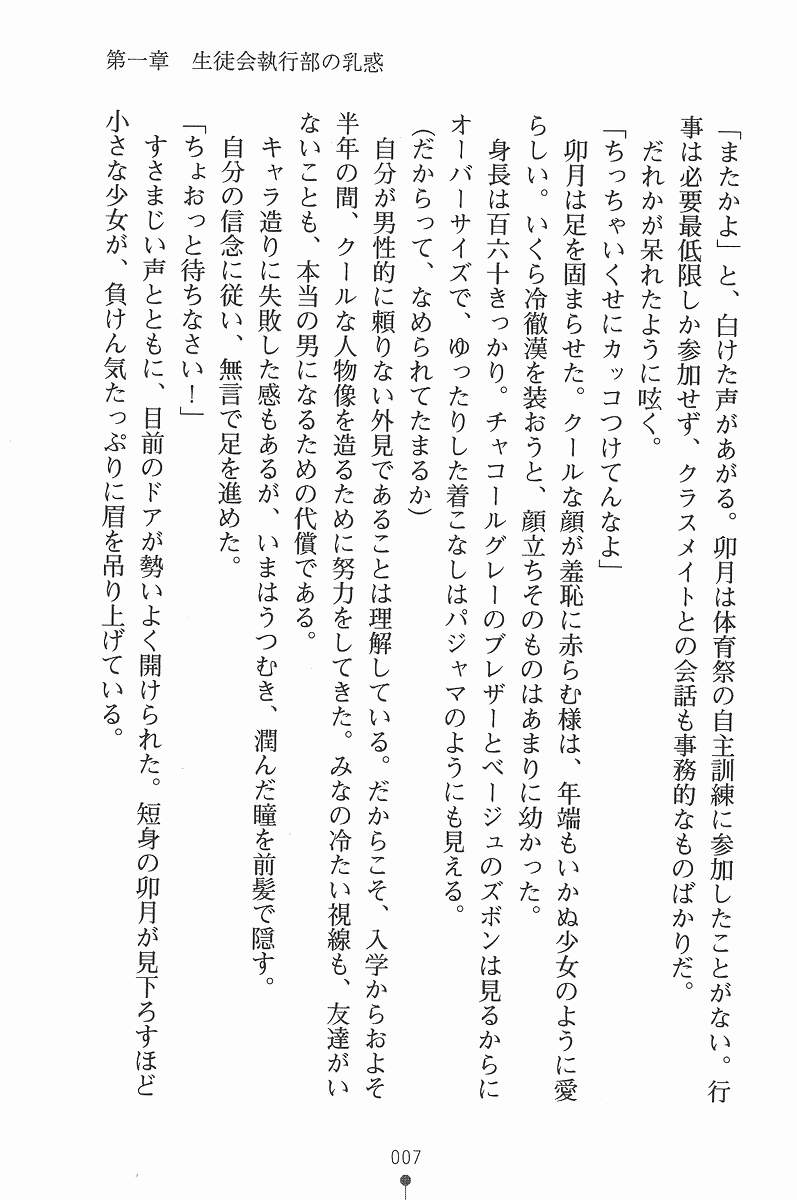 第一章　生徒会執行部の乳惑
「またかよ」と、白けた声があがる。卯月は体育祭の自主訓練に参加したことがない。行
事は必要最低限しか参加せず、クラスメイトとの会話も事務的なものばかりだ。
だれかが呆れたように呟く。
「ちっちゃいくせにカッコつけてんなよ」
卯月は足を固まらせた。クールな顔が羞恥に赤らむ様は、年端もいかぬ少女のように愛
らしい。いくら冷徹漢を装おうと、顔立ちそのものはあまりに幼かった。
身長は百六十きっかり。チャコールグレーのブレザーとベージュのズボンは見るからに
オーバーサイズで、ゆったりした着こなしはパジャマのようにも見える。
(だからって、なめられてたまるか)
自分が男性的に頼りない外見であることは理解している。だからこそ、入学からおよそ
半年の間、クールな人物像を造るために努力をしてきた。みなの冷たい視線も、友達がい
ないことも、本当の男になるための代償である。
キャラ造りに失敗した感もあるが、いまはうつむき、潤んだ瞳を前髪で隠す。
自分の信念に従い、無言で足を進めた。
「ちょおっと待ちなさい！」
すさまじい声とともに、目前のドアが勢いよく開けられた。短身の卯月が見下ろすほど
小さな少女が、負けん気たっぷりに眉を吊り上げている。
007